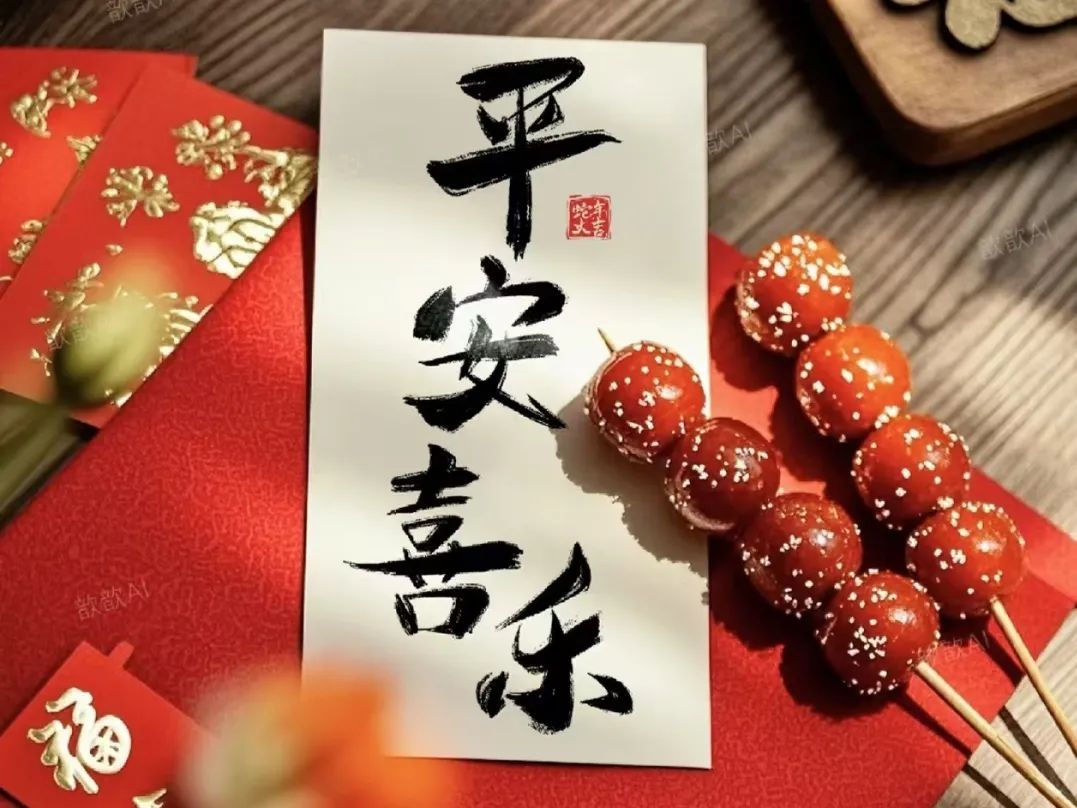 歆歆AI
平安喜乐
蛇年
大吉
歆歆AI
歆歆AI
歆歆AI
歆歆AI
福